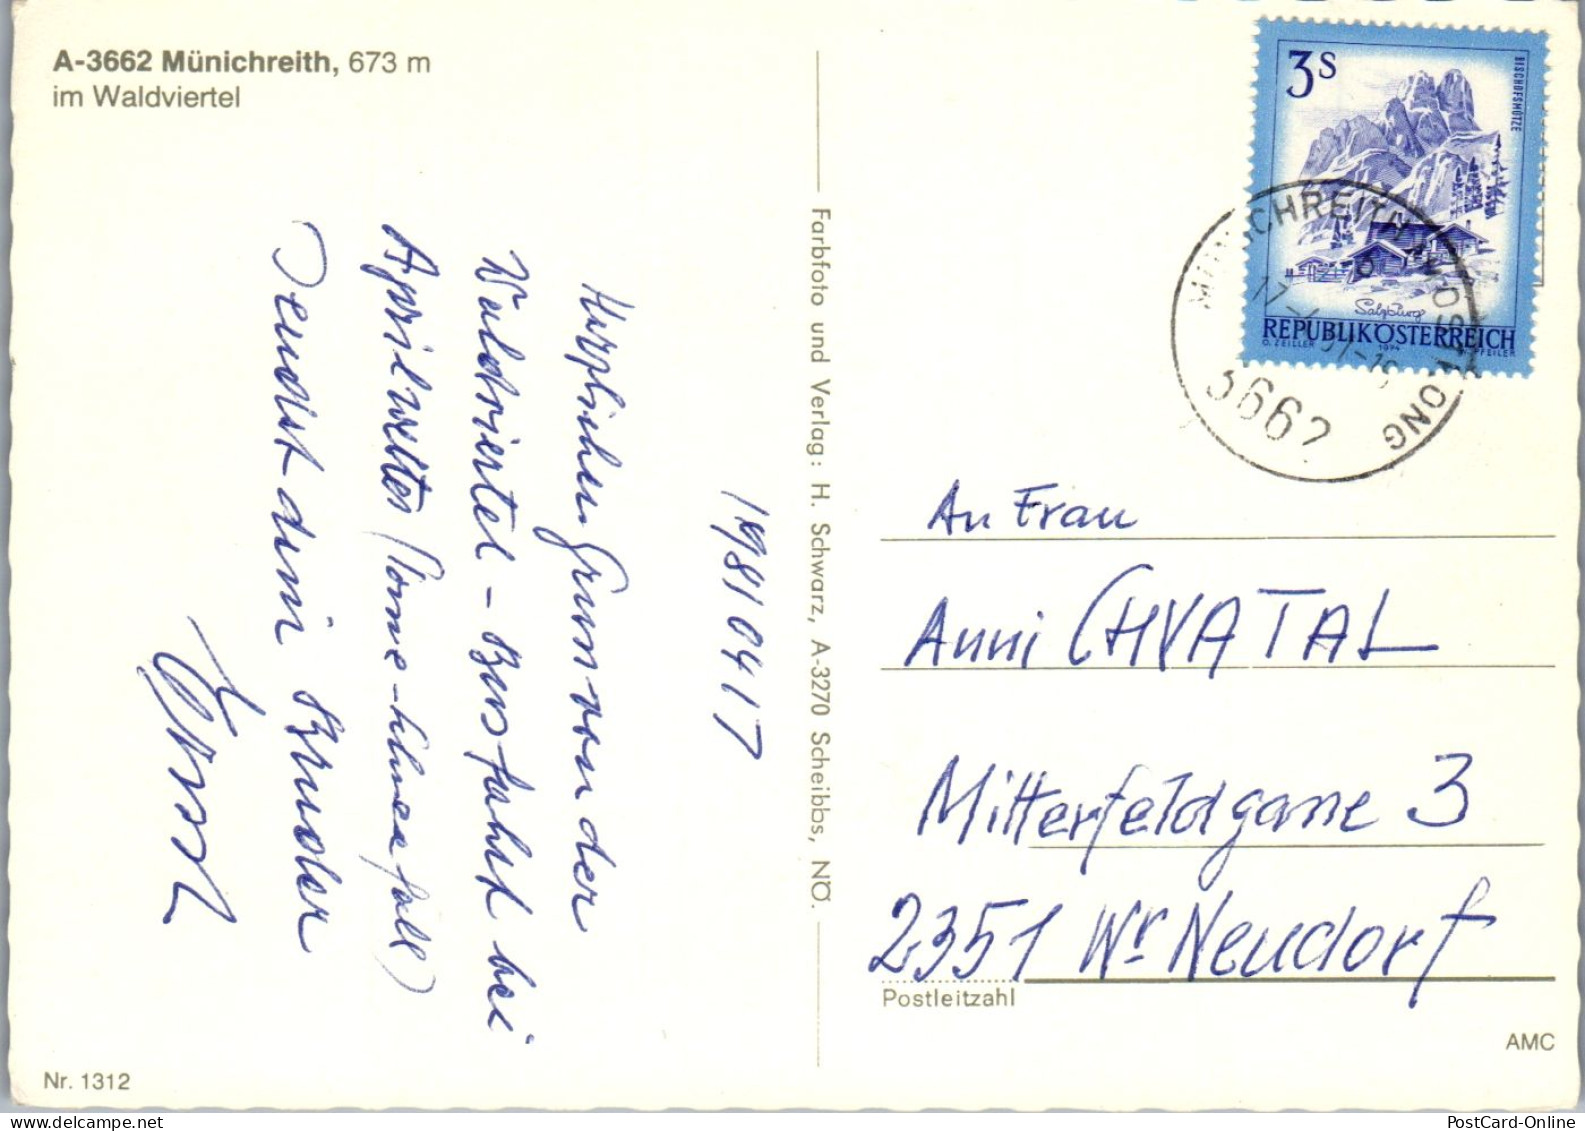 A-3662 Münichreith, 673 m
im Waldviertel
1981 04 17
Herzlichen Gruss von der
Waldviertel - Busfahrt bei
Aprilwetter (Sonne - Schneefall)
Dein Bruder
Nr. 1312
Farbfoto und Verlag: H. Schwarz, A-3270 Scheibbs, NÖ.
3 S
BISCHOFSMÜTZE
Salzburg
REPUBLIK ÖSTERREICH
O. ZEILLER 1974 W. PFEILER
MÜNICHREITH A. OSTRONG
3662
An Frau
Anni CHVATAL
Mitterfeldgasse 3
2351 Wr Neudorf
Postleitzahl
AMC
PostCard-Online